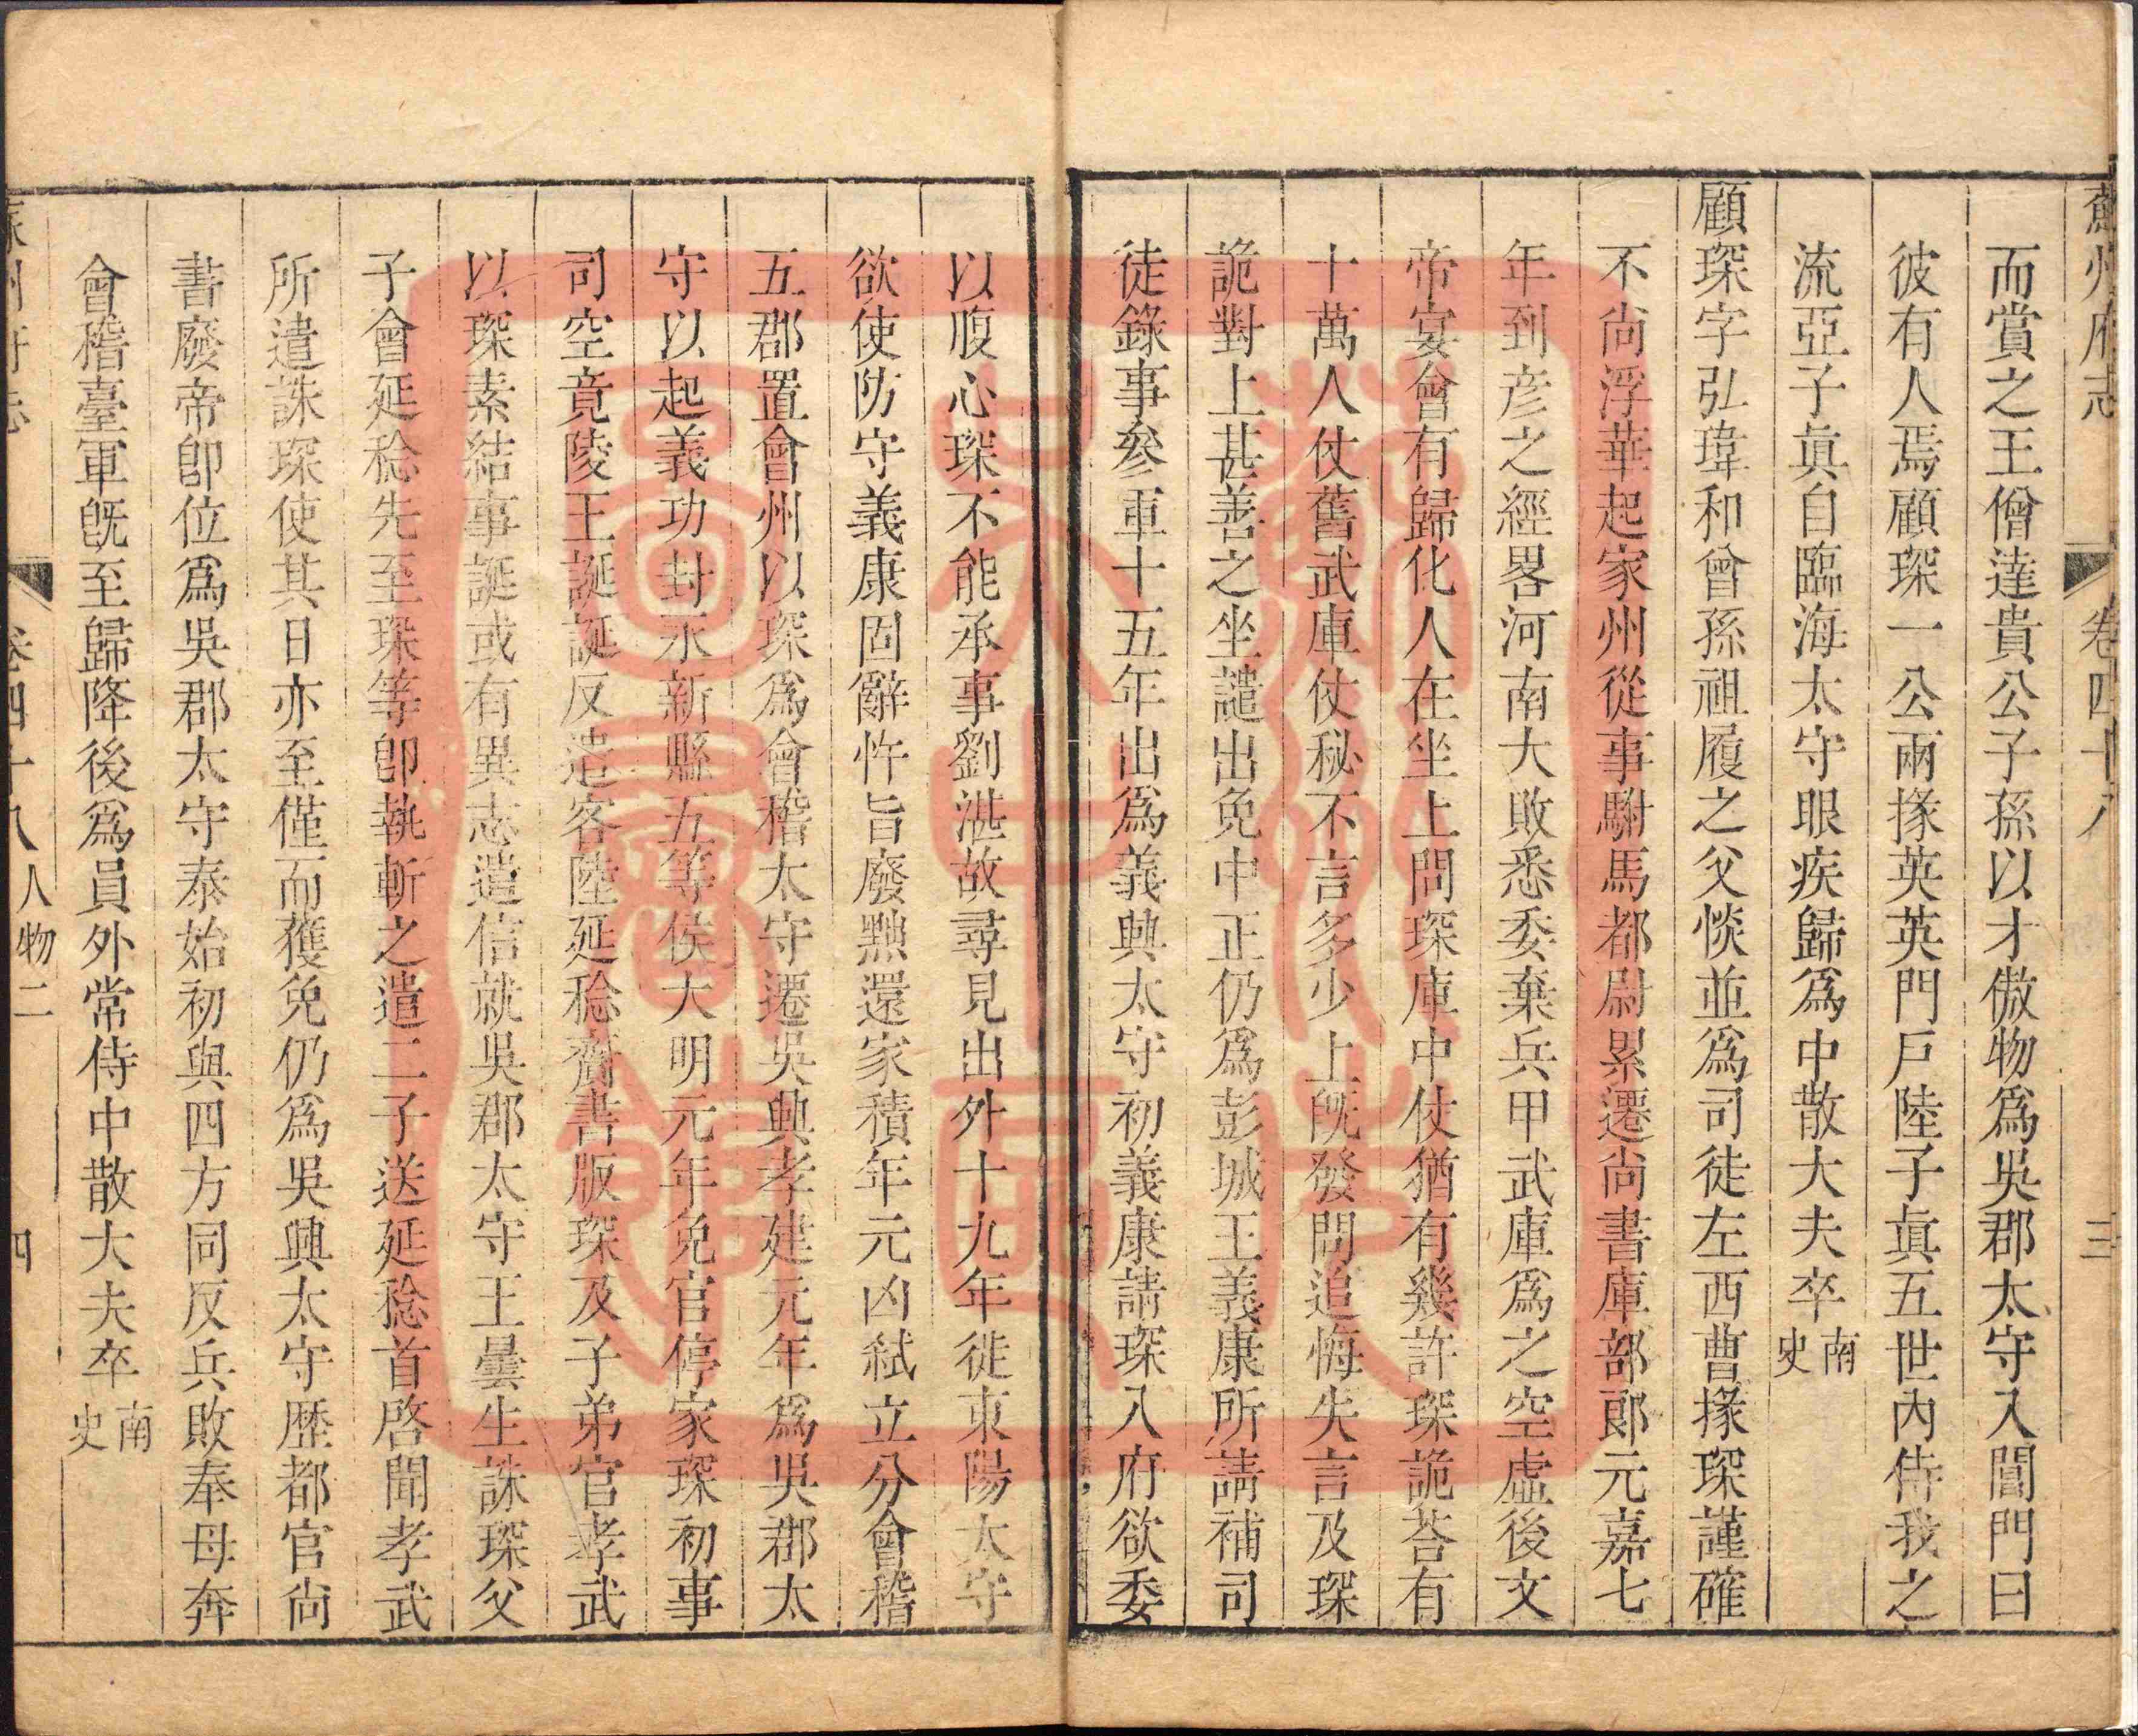 蘇州府志 卷四十八 三
而賞之王僧達貴公子孫以才傲物為吳郡太守入閶門曰
彼有人焉顧琛一公兩掾英英門戶陸子眞五世內侍我之
流亞子眞自臨海太守眼疾歸為中散大夫卒南史
顧琛字弘瑋和曾孫祖履之父惔並為司徒左西曹掾琛謹確
不尙浮華起家州從事駙馬都尉累遷尙書庫部郞元嘉七
年到彥之經畧河南大敗悉委棄兵甲武庫為之空虛後文
帝宴會有歸化人在坐上問琛庫中仗猶有幾許琛詭荅有
十萬人仗舊武庫仗秘不言多少上旣發問追悔失言及琛
詭對上甚善之坐譴出免中正仍為彭城王義康所請補司
徒錄事參軍十五年出為義興太守初義康請琛入府欲委
以腹心琛不能承事劉湛故尋見出外十九年徙東陽太守
欲使防守義康固辭忤旨廢黜還家積年元凶弑立分會稽
五郡置會州以琛為會稽太守遷吳興孝建元年為吳郡太
守以起義功封永新縣五等侯大明元年免官停家琛初事
司空竟陵王誕誕反遣客陸延稔齎書版琛及子弟官孝武
以琛素結事誕或有異志遣信就吳郡太守王曇生誅琛父
子會延稔先至琛等卽執斬之遣二子送延稔首啓聞孝武
所遣誅琛使其日亦至僅而獲免仍為吳興太守歷都官尙
書廢帝卽位為吳郡太守泰始初與四方同反兵敗奉母奔
會稽臺軍旣至歸降後為員外常侍中散大夫卒南史
蘇州府志 卷四十八 人物二 四